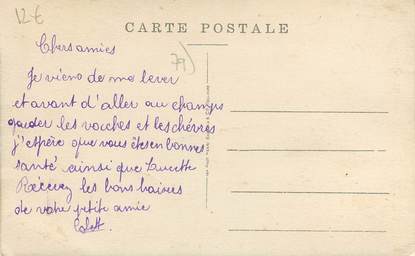 12€
CARTE POSTALE
79)
Chers amies
Je viens de me lever
et avant d'aller au champs
garder les vaches et les chévres
j'espère que vous êtes en bonnes
santé ainsi que Lucette
Recevez les bons baises
de votre petite amie